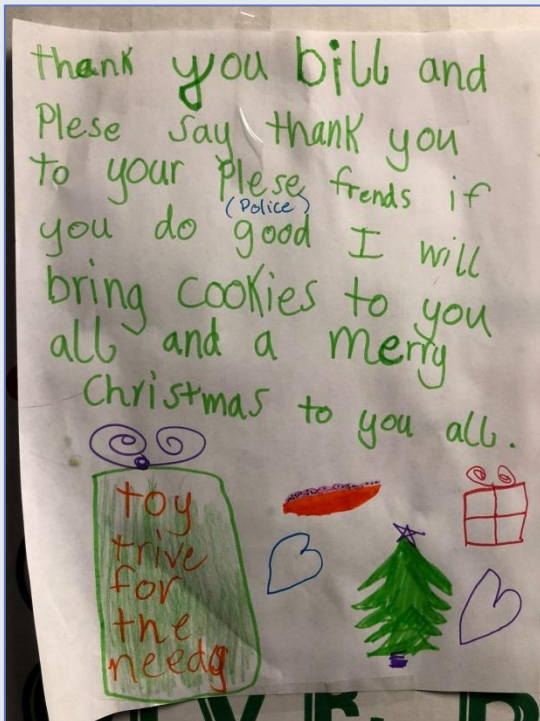 thank you bill and
Plese say thank you
to your Plese frends if
(Police)
you do good I will
bring cookies to you
all and a merry
Christmas to you all.
toy
trive
for
the
needy